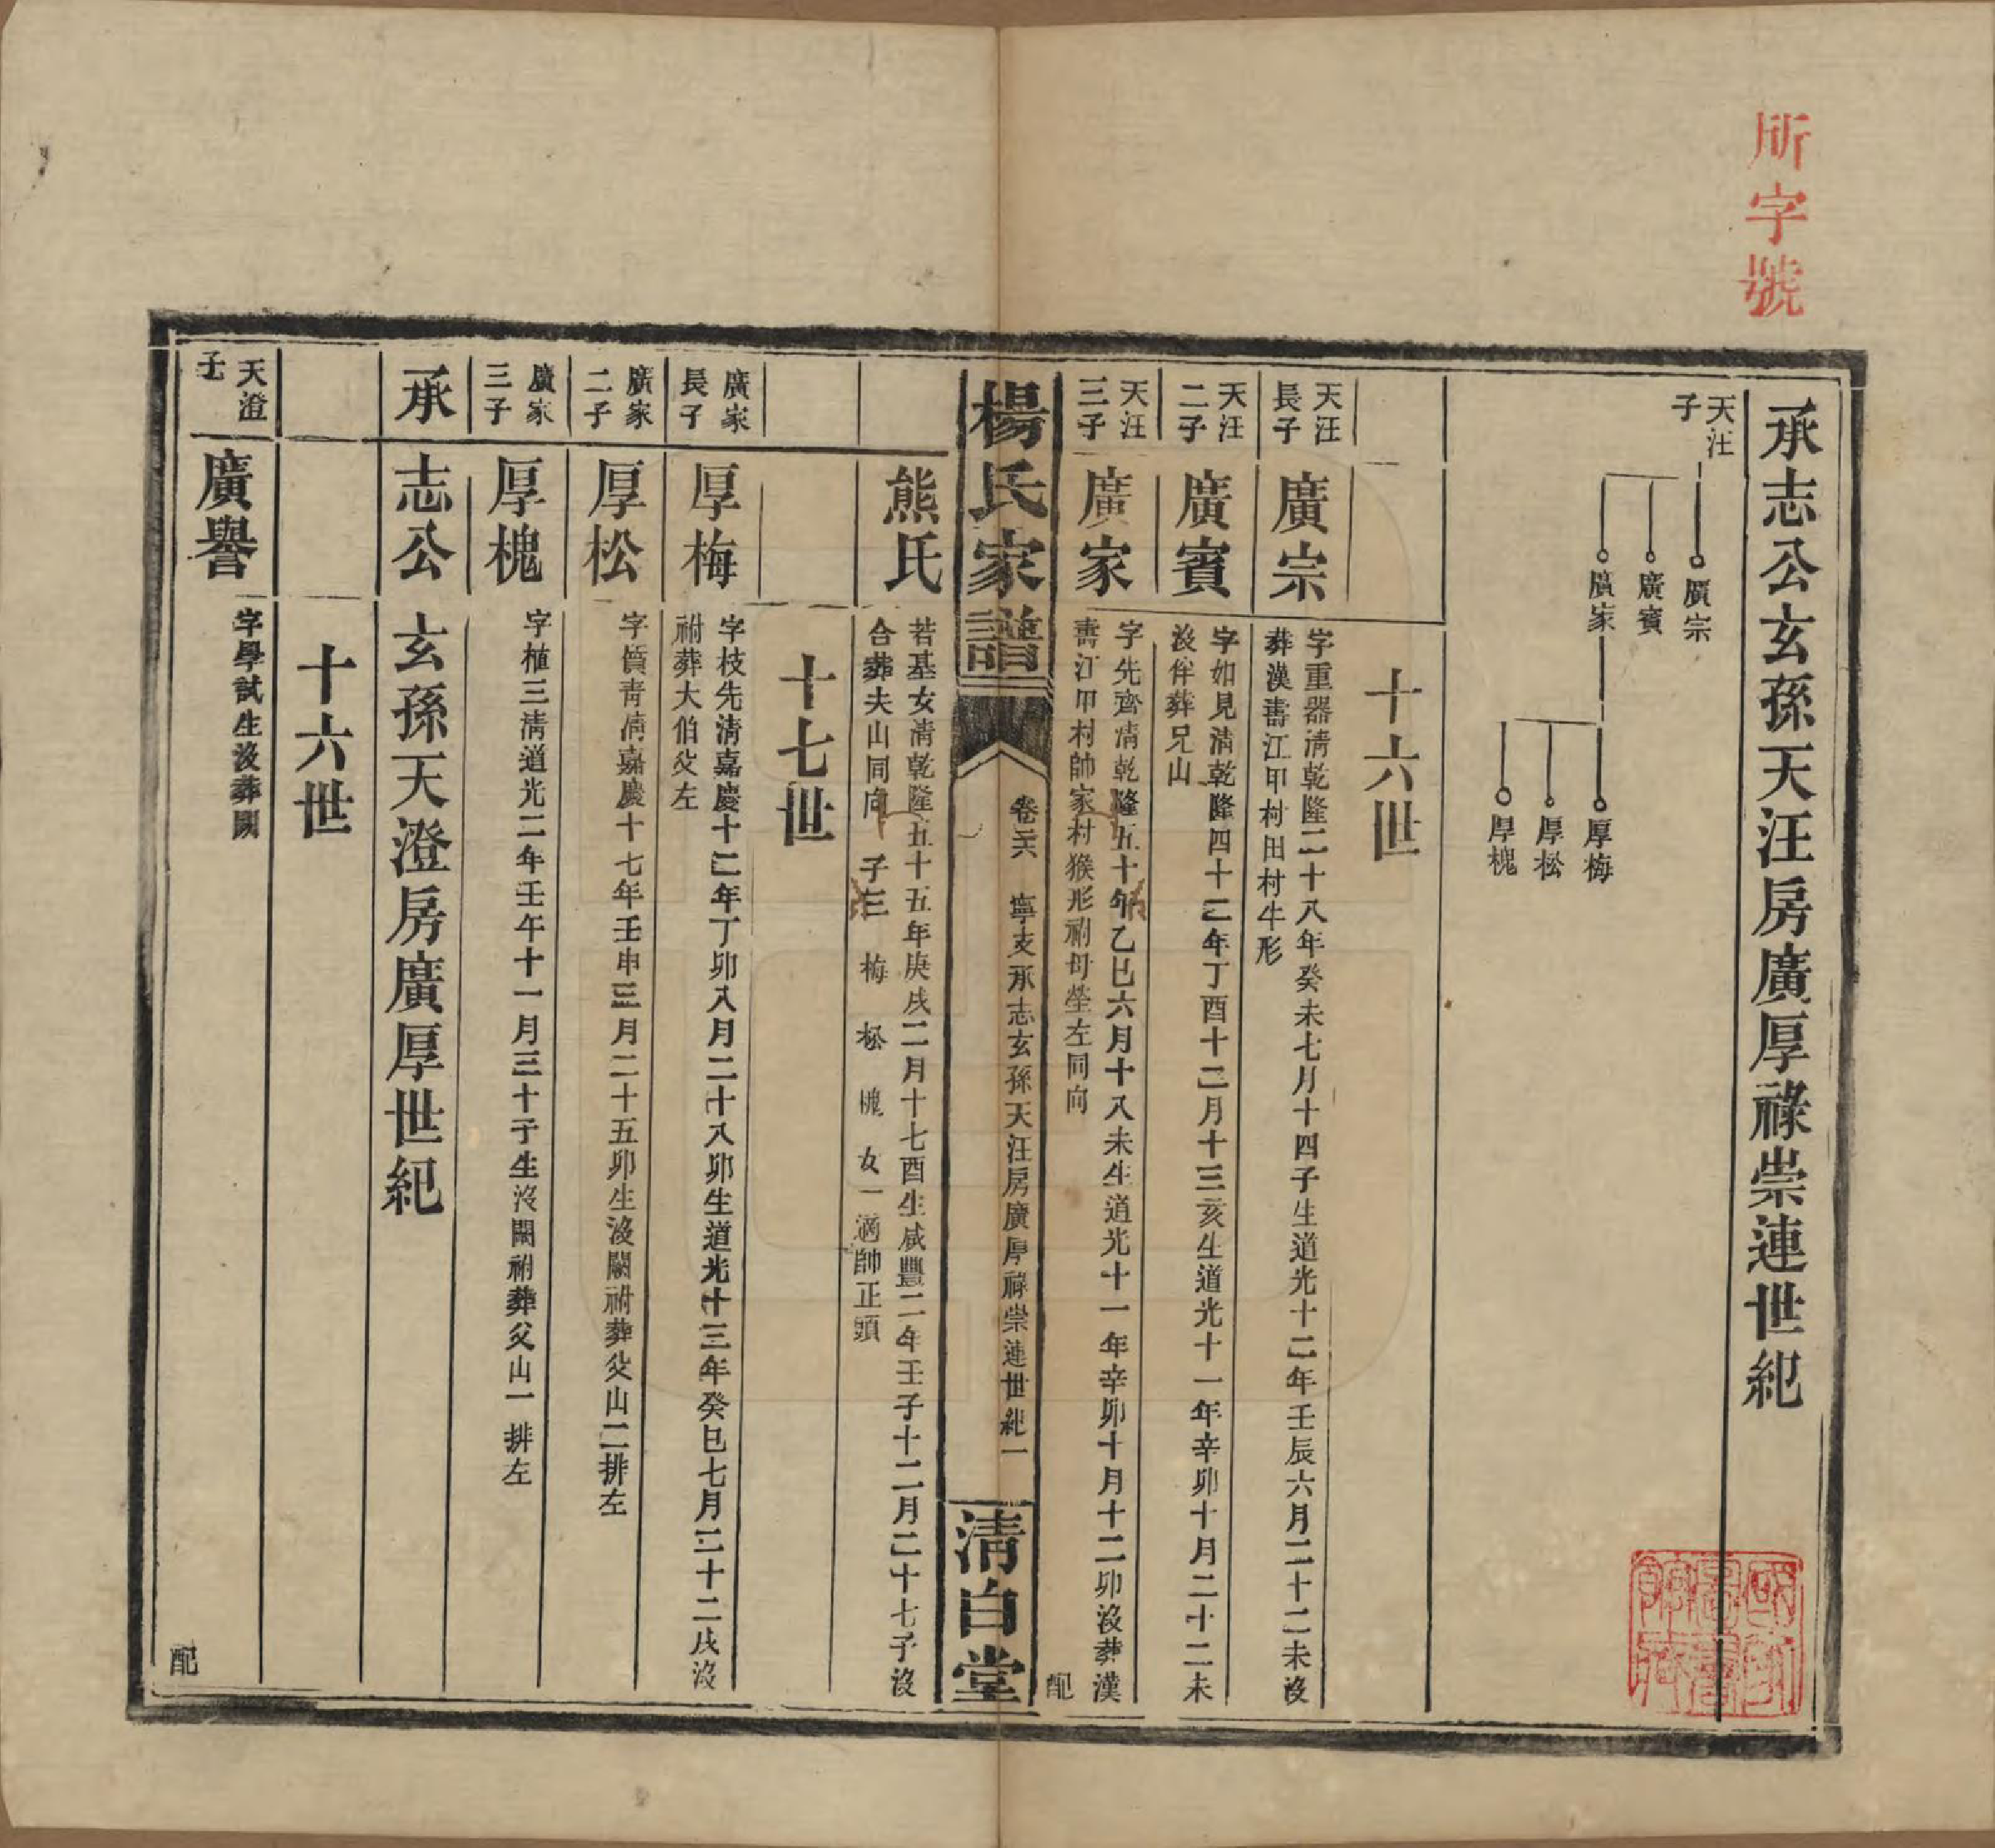 所字號
承志公玄孫天汪房廣厚祿崇連世紀
天汪
子
廣宗
廣賓
廣家
厚梅
厚松
厚槐
十六世
天汪
長子
廣宗
字重器清乾隆二十八年癸未七月十四子生道光十二年壬辰六月二十二未沒
葬漢壽江甲村田村牛形
天汪
二子
廣賓
字如見清乾隆四十二年丁酉十二月十三亥生道光十一年辛卯十月二十二未
沒侔葬兄山
天汪
三子
廣家
字先齊清乾隆五十年乙巳六月十八未生道光十一年辛卯十月十二卯沒葬漢
壽江甲村帥家村猴形祔母塋左同向
配
楊氏家譜
卷三六
寧支承志玄孫天汪房廣厚祿崇連世紀一
清白堂
熊氏
若基女清乾隆五十五年庚戌二月十七酉生咸豐二年壬子十二月二十七子沒
合葬夫山同向 子三 梅 松 槐 女一適帥正頭
十七世
廣家
長子
厚梅
字枝先清嘉慶十二年丁卯八月二十八卯生道光十三年癸巳七月二十二戌沒
祔葬大伯父左
廣家
二子
厚松
字慎青清嘉慶十七年壬申三月二十五卯生沒闕祔葬父山二排左
廣家
三子
厚槐
字植三清道光二年壬午十一月三十子生沒闕祔葬父山一排左
承志公玄孫天澄房廣厚世紀
十六世
天澄
子
廣譽
字學試生沒葬闕
配